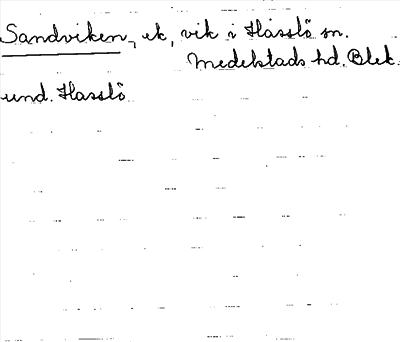 Sandviken, ek, vik i Hasslö sn.
Medelstads hd. Blek.
und. Hasslö